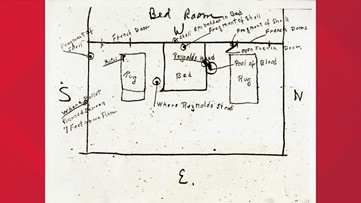 Bed Room
W
Shell Embedded in Bed
Fragment of Shell
Fragment of Shell
French Door
French Doors
Fragment of Shell
open French Door
Reynolds Head
Pool of Blood
Rug
Bed
Rug
S
N
Where Reynolds Stood
Where Bullet
Pierced Screen
7 Feet above Floor
E.